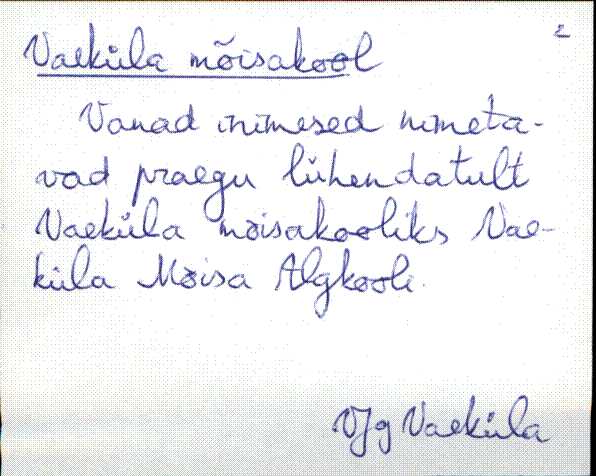 Vaeküla mõisakool
Vanad inimesed nimeta-
vad praegu lühendatult
Vaeküla mõisakooliks Vae-
küla Mõisa Algkooli.
VJg Vaeküla